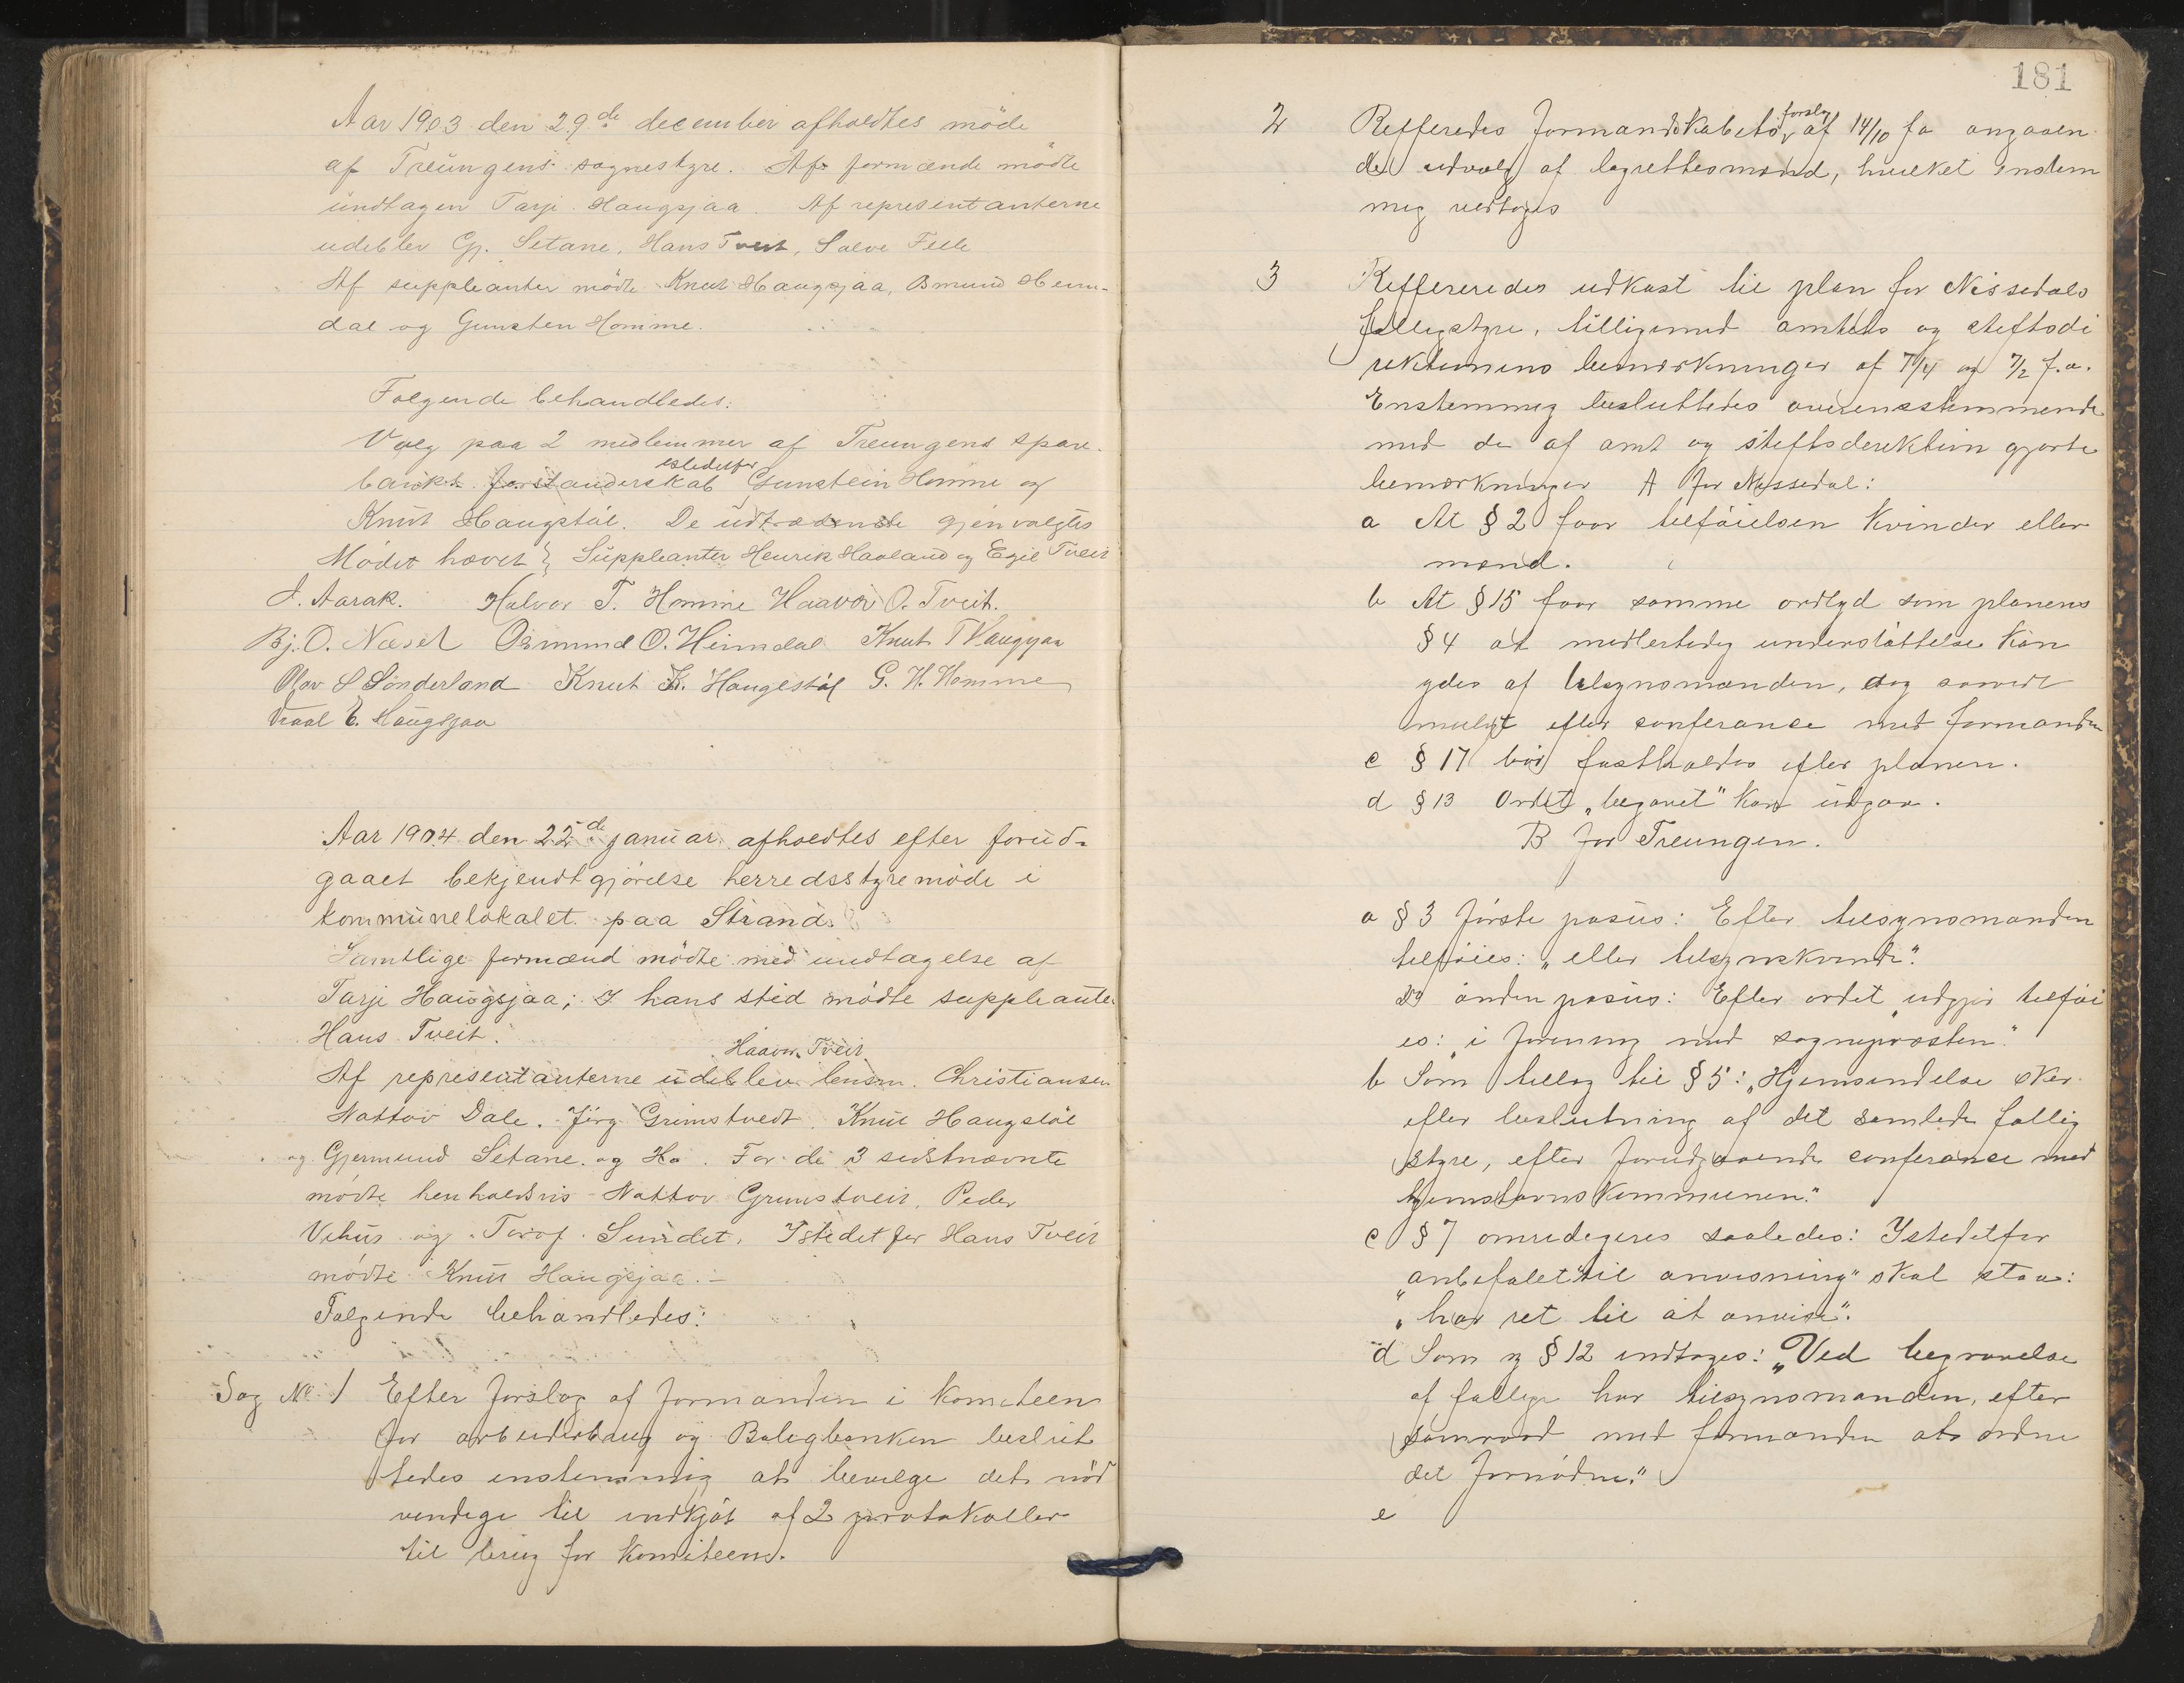 Aar 1903 den 29de december afholdtes möde
af Treungens sognestyre. Af formænde mödte
undtagen Tarje Haugsjaa. Af representanterne
udeblev Gj. Setane, Hans Tveit, Salve Felle
Af suppleanter mödte Knut Haugsjaa, Osmund Heim-
dal og Gunsten Homme.
Følgende behandledes:
Valg paa 2 medlemmer af Treungens spare-
istedetfor
banks forstanderskab Gunstein Homme og
Knut Haugstöl. De udtrædende gjenvalgtes
Mödet hævet Suppleanter Henrik Haaland og Egil Tveit
J. Aarak. Halvor T. Homme Haavor O. Tveit.
Bj. O. Næset Osmund O. Heimdal Knut T Haugsjaa
Olav S Sönderland Knut K. Haugestöl G. H. Homme
Vraal E. Haugsjaa
Aar 1904 den 22de januar afholdtes efter forud-
gaaet bekjendtgjörelse herredsstyremöde i
kommunelokalet paa Strand.
Samtlige formænd mödte med undtagelse af
Tarje Haugsjaa; I hans sted mödte suppleanten
Hans Tveit.
Haavor Tveit
Af representanterne udeblev lensm. Christiansen
Nattov Dale. Jörg Grimstvedt. Knut Haugstöl
og Gjermund Setane. og Ha. For de 3 sidstnævnte
mödte henholdsvis Nattov Grimstveit, Peder
Vehus og Torof Sundet. Istedet for Hans Tveit
mödte Knut Haugsjaa. -
Følgende behandledes:
Sag No 1 Efter forslag af formanden i komiteen
for arbeiderbrug og Boligbanken beslut
tedes enstemmig at bevilge det nöd
vendige til indkjöb af 2 protokoller
til brug for komiteen.
181
forslag
2 Refferedes formandskabets af 14/10 fa angaaen
de udvalg af lagrettesmænd, hvilket enstem
mig vedtoges
3 Reffereredes udkast til plan for Nissedals
fattigstyre, tilligemed amtets og stiftsdi
rektionens bemærkninger af 7/4 og 7/2 f.a.
Enstemmig besluttedes overensstemmende
med de af amt og stiftsdirektion gjorte
bemærkninger A for Nissedal:
a At § 2 faar tilföielsen kvinder eller
mænd.
b At § 15 faar samme ordlyd som planens
§ 4 at midlertidig understöttelse kan
ydes af tilsynsmanden, dog saavidt
muligt efter conferance med formanden
c § 17 bör fastholdes efter planen.
d § 13 Ordet „begavet" kan udgaa.
B for Treungen.
a § 3 förste pasus: Efter tilsynsmanden
tilföies: „eller tilsynskvinde".
anden pasus: Efter ordet „udgjör tilföi
es: „i forening med sognepræsten."
b Som tillæg til § 5: „Hjemsendelse sker
efter beslutning af det samlede fattig
styre, efter forudgaaende conferance med
hjemstavnskommunen."
c § 7 omredigeres saaledes: Istedetfor
„anbefalet til anvisning" skal staa:
„har ret til at anvise".
d Som ny § 12 indtages: „Ved begravelse
af fattige har tilsynsmanden, efter
samraad med formanden at ordne
det fornödne."
e